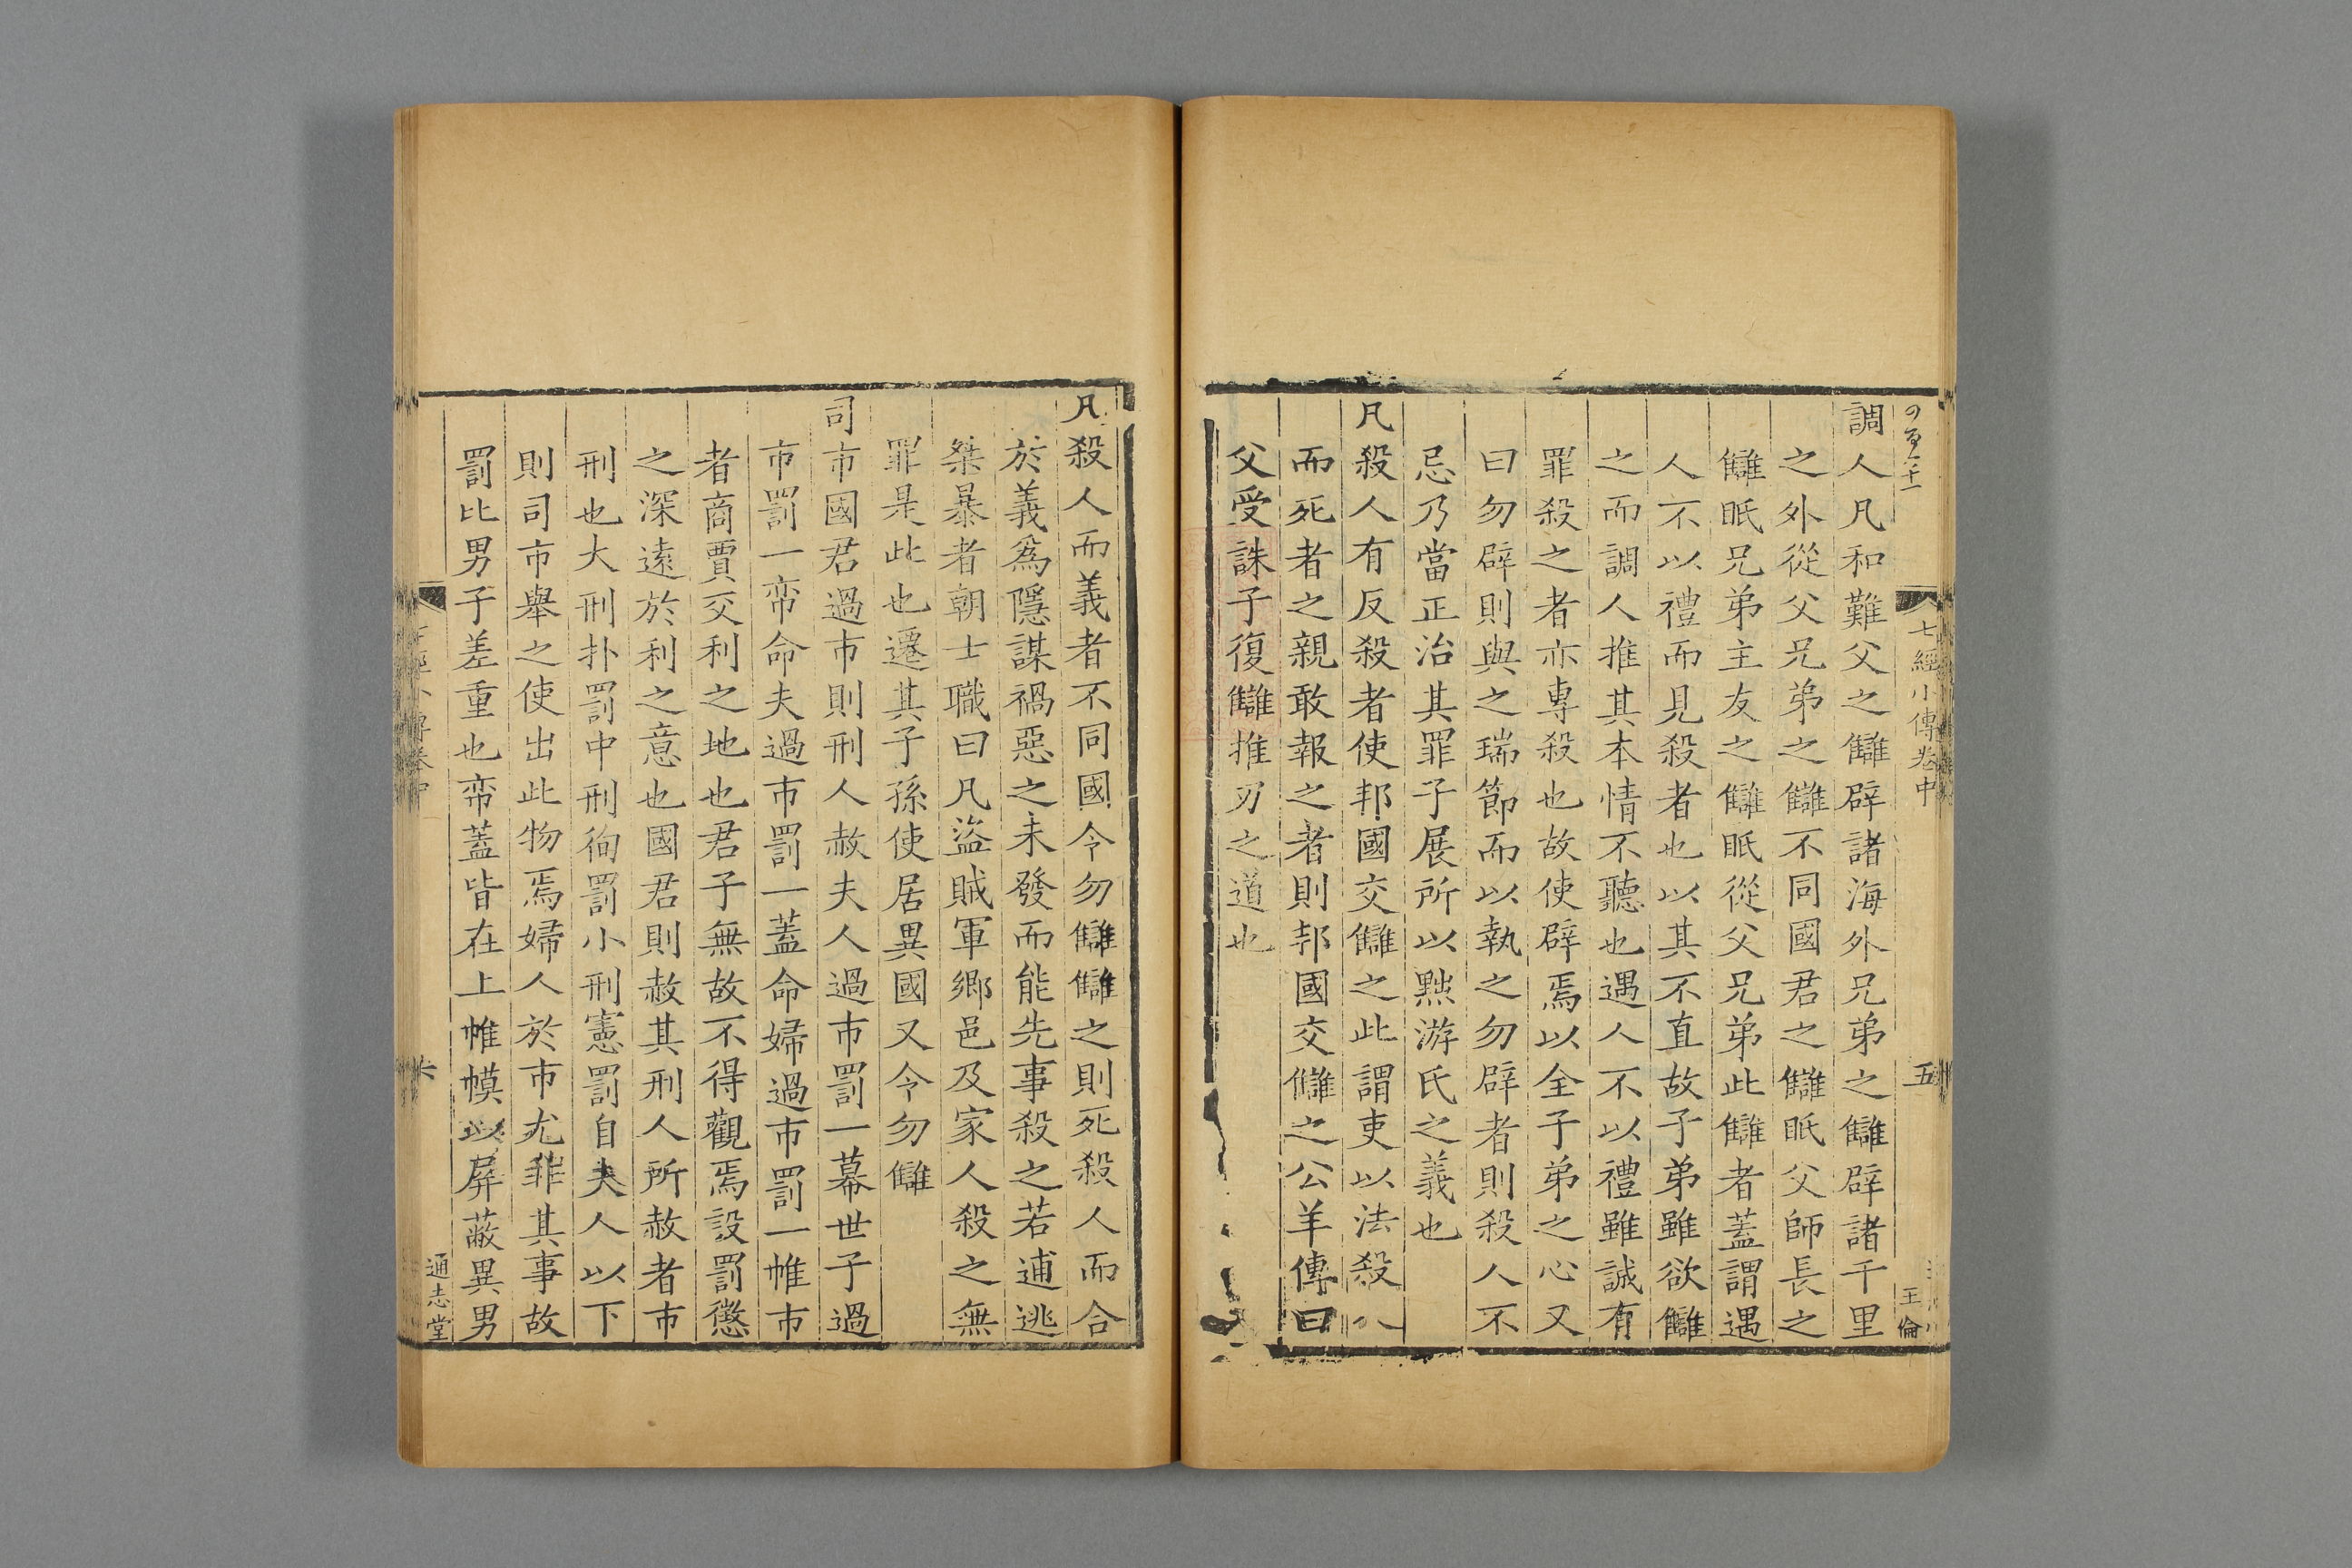 七經小傳卷中
五
王倫
調人凡和難父之讎辟諸海外兄弟之讎辟諸千里
之外從父兄弟之讎不同國君之讎眡父師長之
讎眡兄弟主友之讎眡從父兄弟此讎者蓋謂遇
人不以禮而見殺者也以其不直故子弟雖欲讎
之而調人推其本情不聽也遇人不以禮雖誠有
罪殺之者亦專殺也故使辟焉以全子弟之心又
曰勿辟則與之瑞節而以執之勿辟者則殺人不
忌乃當正治其罪子展所以黜游氏之義也
凡殺人有反殺者使邦國交讎之此謂吏以法殺人
而死者之親敢報之者則邦國交讎之公羊傳曰
父受誅子復讎推刃之道也
凡殺人而義者不同國令勿讎讎之則死殺人而合
於義爲隱謀禍惡之未發而能先事殺之若逋逃
桀暴者朝士職曰凡盜賊軍鄉邑及家人殺之無
罪是此也遷其子孫使居異國又令勿讎
司市國君過市則刑人赦夫人過市罰一幕世子過
市罰一帟命夫過市罰一蓋命婦過市罰一帷市
者商賈交利之地也君子無故不得觀焉設罰懲
之深遠於利之意也國君則赦其刑人所赦者市
刑也大刑扑罰中刑徇罰小刑憲罰自夫人以下
則司市舉之使出此物焉婦人於市尤非其事故
罰比男子差重也帟蓋皆在上帷幙以屏蔽異男
七經小傳卷中
六
通志堂